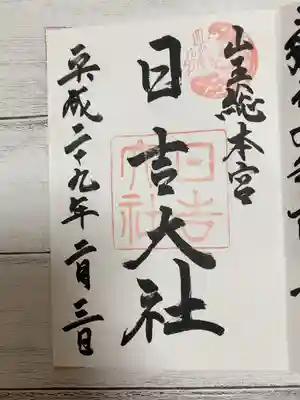 山王総本宮
日吉大社
日吉
大社
平成二十九年二月三日